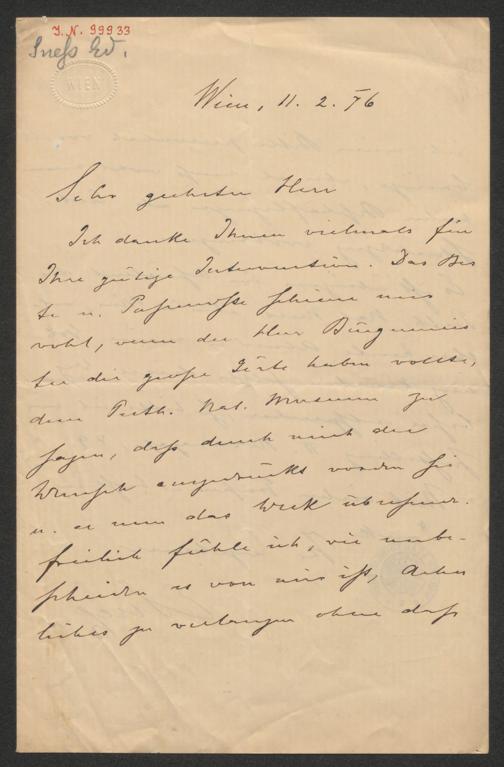 J. N. 99933
Sueß Ed.
WIEN
Wien, 11. 2. 76
Sehr geehrter Herr
Ich danke Ihnen vielmals für
Ihre gütige Intervention. Das Bes
te u. Passendste schiene mir
wohl, wenn der Herr Bürgermeis
ter die große Güte haben wollte,
dem Nat. Museum zu
sagen, daß durch mich der
Wunsch ausgedrückt worden sei
u. er nun das Werk übersende.
freilich fühle ich, wie unbe-
scheiden es von mir ist,
liches zu verlangen ohne daß